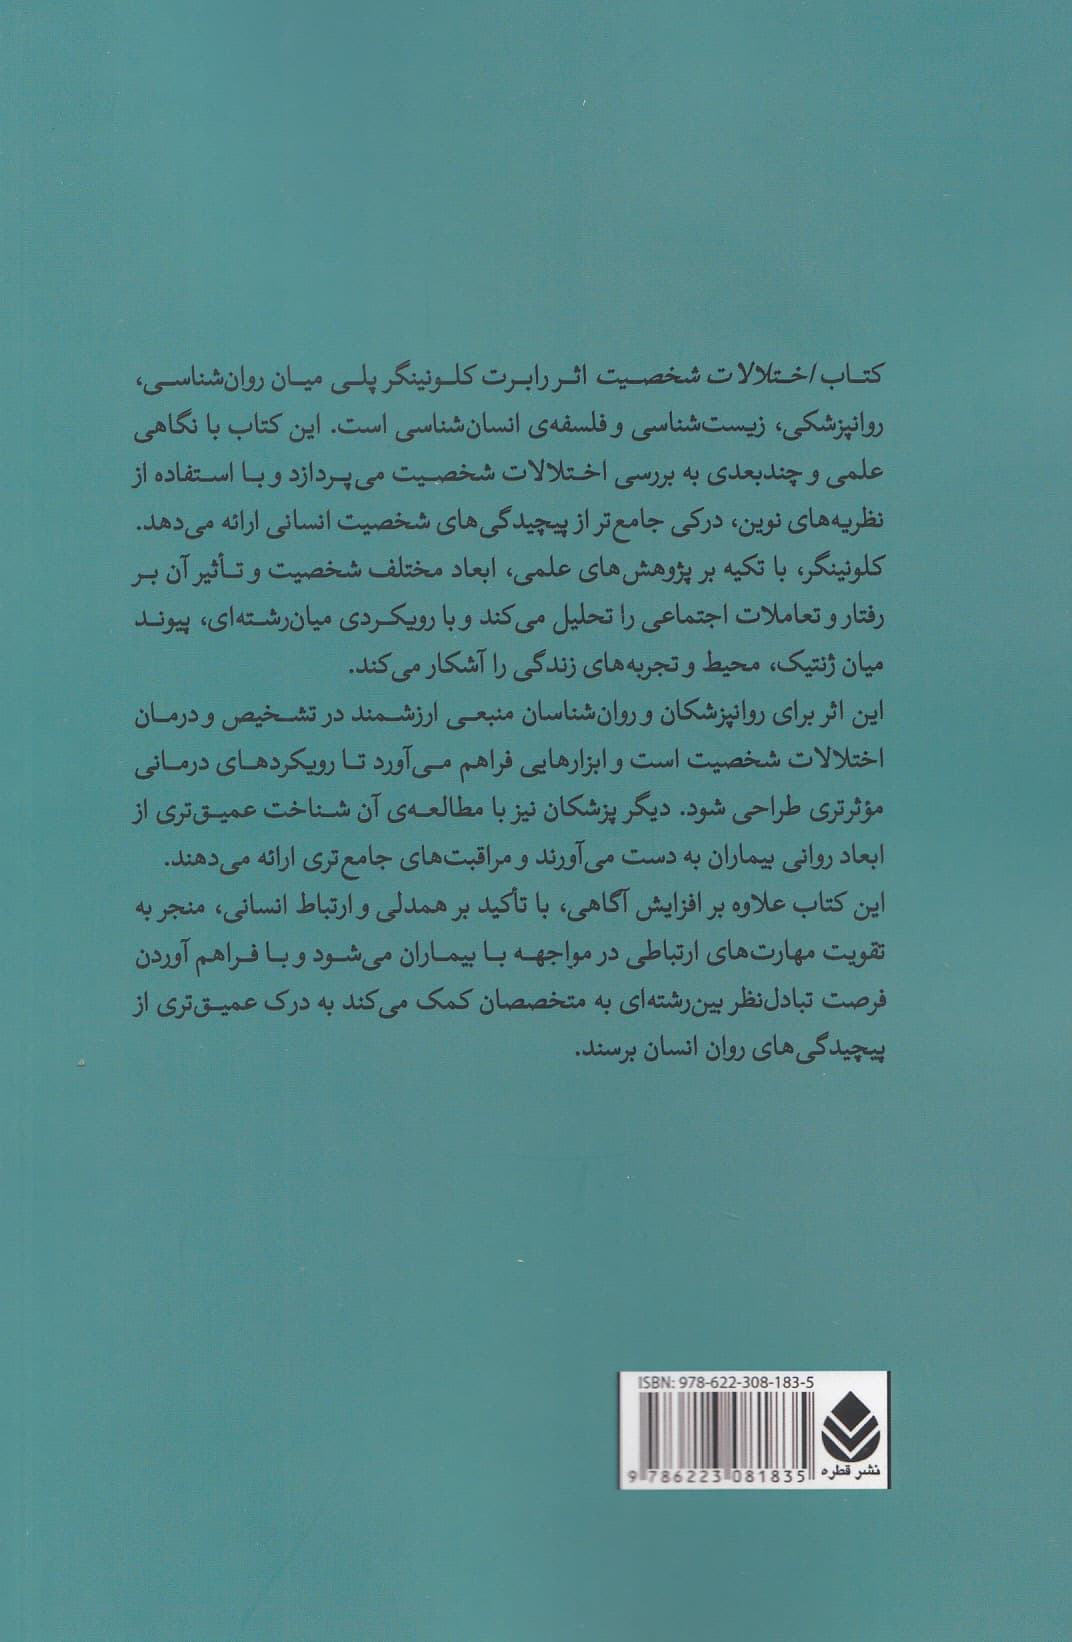 کتاب اختلالات شخصیت اثر رابرت کلونینگر پلی میان روان‌شناسی،
روانپزشکی، زیست‌شناسی و فلسفه‌ی انسان‌شناسی است. این کتاب با نگاهی
علمی و چندبعدی به بررسی اختلالات شخصیت می‌پردازد و با استفاده از
نظریه‌های نوین، درکی جامع‌تر از پیچیدگی‌های شخصیت انسانی ارائه می‌دهد.
کلونینگر، با تکیه بر پژوهش‌های علمی، ابعاد مختلف شخصیت و تأثیر آن بر
رفتار و تعاملات اجتماعی را تحلیل می‌کند و با رویکردی میان‌رشته‌ای، پیوند
میان ژنتیک، محیط و تجربه‌های زندگی را آشکار می‌کند.
این اثر برای روانپزشکان و روان‌شناسان منبعی ارزشمند در تشخیص و درمان
اختلالات شخصیت است و ابزارهایی فراهم می‌آورد تا رویکردهای درمانی
مؤثرتری طراحی شود. دیگر پزشکان نیز با مطالعه‌ی آن شناخت عمیق‌تری از
ابعاد روانی بیماران به دست می‌آورند و مراقبت‌های جامع‌تری ارائه می‌دهند.
این کتاب علاوه بر افزایش آگاهی، با تأکید بر همدلی و ارتباط انسانی، منجر به
تقویت مهارت‌های ارتباطی در مواجهه با بیماران می‌شود و با فراهم آوردن
فرصت تبادل‌نظر بین‌رشته‌ای به متخصصان کمک می‌کند به درک عمیق‌تری از
پیچیدگی‌های روان انسان برسند.
ISBN: 978-622-308-183-5
9 786223 081835
نشر قطره